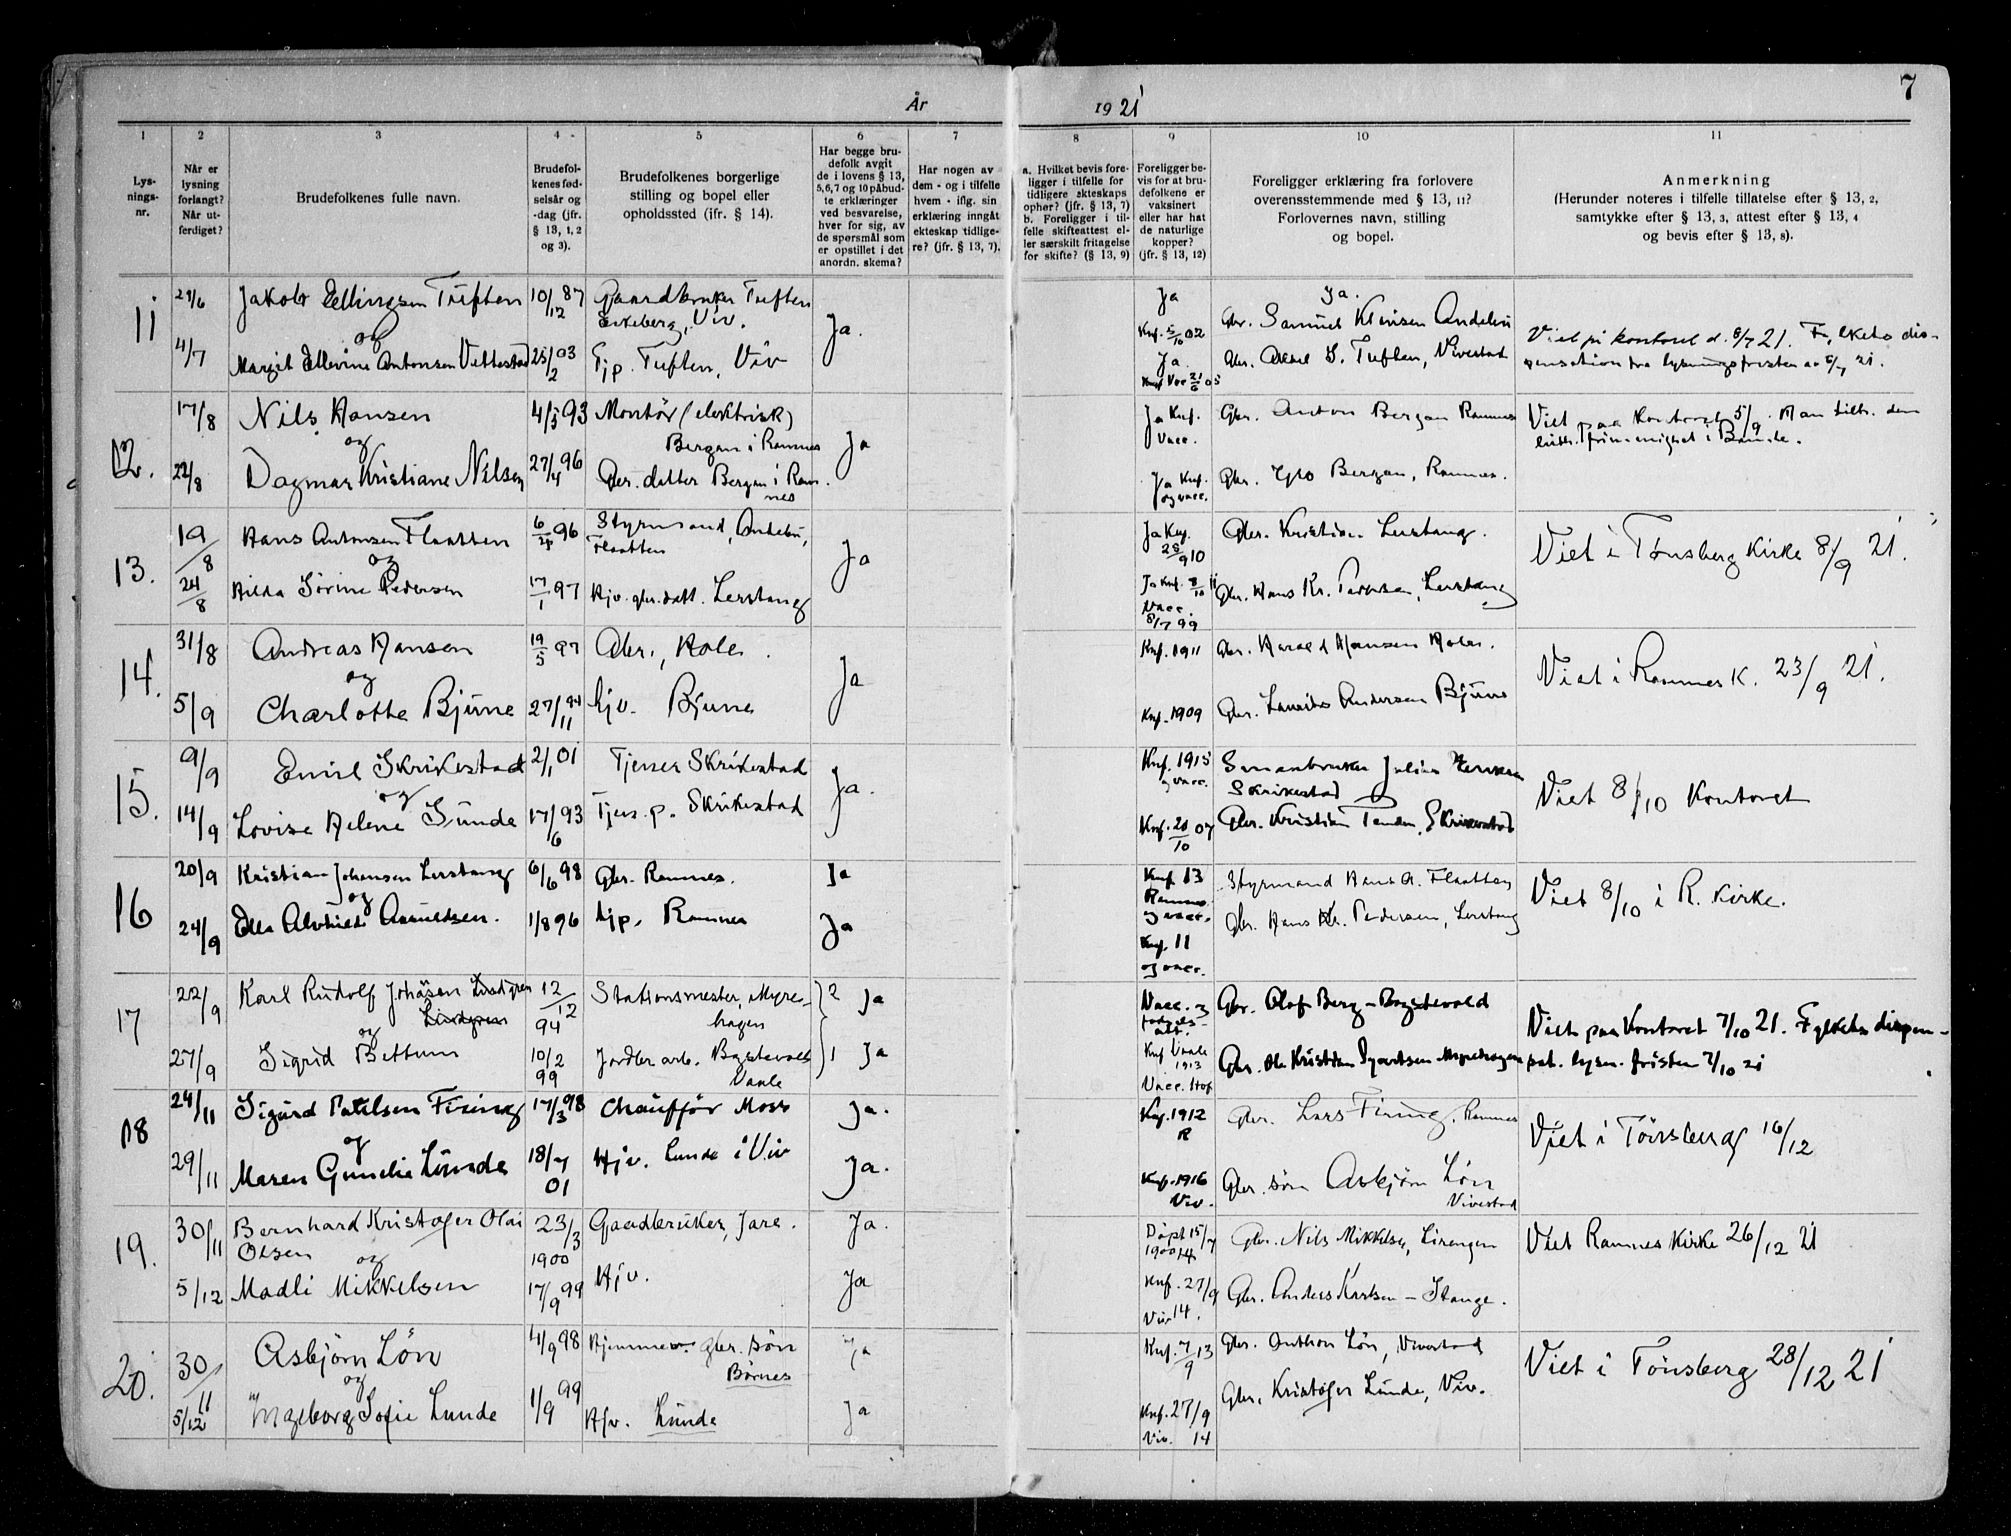 7
År 1921
1
Lys-
nings-
nr.
2
Når er
lysning
forlangt?
Når ut-
ferdiget?
3
Brudefolkenes fulle navn.
4
Brudefol-
kenes fød-
selsår og
-dag (jfr.
§ 13, 1, 2
og 3).
5
Brudefolkenes borgerlige
stilling og bopel eller
opholdssted (ifr. § 14).
6
Har begge bru-
defolk avgit
de i lovens § 13,
5, 6, 7 og 10 påbud-
te erklæringer
ved besvarelse,
hver for sig, av
de spørsmål som
er opstillet i det
anordn. skema?
7
Har nogen av
dem - og i tilfelle
hvem - iflg. sin
erklæring inngåt
ekteskap tidlige-
re? (jfr. § 13, 7).
8
a. Hvilket bevis fore-
ligger i tilfelle for
tidligere ekteskaps
ophør? (jfr. § 13, 7)
b. Foreligger i til-
felle skifteattest el-
ler særskilt fritagelse
for skifte? (§ 13, 9)
9
Foreligger be-
vis for at bru-
defolkene er
vaksinert
eller har hat
de naturlige
kopper?
(jfr. § 13, 12)
10
Foreligger erklæring fra forlovere
overensstemmende med § 13, 11?
Forlovernes navn, stilling
og bopel.
11
Anmerkning
(Herunder noteres i tilfelle tillatelse efter § 13, 2,
samtykke efter § 13, 3, attest efter § 13, 4
og bevis efter § 13, 8).
11
Jakob Ellingsen Tuften 10/12 87 Gaardbruker Tuften
Viv. Ja.
og
4/7 Margit Ellevine Antonsen Vettestad 25/2 03 Tjp. Tuften, Viv
Ja Ja.
Knf. 5/10 02 Gbr. Samuel Andebu
Ja Gbr. Tuften, Vivestad
Viet på kontoret d. 8/7 21. Fylkets dis-
pensation fra lysningsfristen av 5/7 21.
12. 17/8 Nils Hansen 4/5 93 Montør (elektrisk)
og Bergan i Ramnes Ja
22/8 Dagmar Kristiane Nilsen 27/4 96 Gbr. datter Bergan i Ram-
nes
Ja Knf. Vacc. Gbr. Anton Bergan Ramnes
Ja Knf. og vacc. Gbr. Bergan, Ramnes.
Viet paa Kontoret 5/9.
13. 19/8 Hans Antonsen Flaatten 96 Styrmand, Andebu,
Flaatten Ja
og
24/8 Hilda Sørine Pedersen 17/1 97 Hjv. gbr. datt. Lerstang
Ja Knf. 25/9 10 Gbr. Kristian Lerstang.
Ja Knf. 8/10 11 Vacc. 8/7 99 Gbr. Hans Kr. Pedersen, Lerstang
Viet i Tønsberg Kirke 8/9 21.
14. 31/8 Andreas Hansen 19/5 97 Gbr., Holen.
og Ja
5/9 Charlotte Bjune 27/11 94 hjv. Bjune
Knf. 1911 Gbr. Harald Hansen Holen.
Knf. 1909 Gbr. Laurits Andersen Bjune
Viet i Ramnes K. 23/9 21.
15. 9/9 Emil Skrikestad 2/1 01 Tjener Skrikestad
og Ja.
14/9 Lovise Helene Sunde 17/6 93 Tjen. p. Skrikestad
Knf. 1915 og vacc. Smaabruker Julius
Skrikestad
Knf. 20/10 07 Gbr. Kristian Skrikestad
Viet 8/10 Kontoret
16 20/9 Kristian Johansen Lerstang 6/6 98 Gbr. Ramnes. Ja
og
24/9 Ella Alvhild Arnuldsen. 1/8 96 hjp. Ramnes Ja
Knf. 13 Ramnes og vacc. Styrmand Hans A. Flaatten
Gbr. Hans Kr. Pedersen, Lerstang
Knf. 11 og vacc.
Viet 8/10 i R. Kirke.
17 22/9 Karl Rudolf Lindgren 12/12 94 Stationsmester, Myre-
hagen 2 Ja
Lindgren
og
27/9 Sigrid Bettum 10/2 99 Jordbr. arb. Bogstevold
Vaale 1 Ja
Vacc. og fødsels-
att. Gbr. Olof Berg - Bogstevold
Knf. Vaale 1913 Vacc. Hof Gbr. Ole Kristian Myrehagen
Viet paa Kontoret 7/10 21. Fylkets dispen-
sat. lysn. fristen 7/10 21
18 24/11 Sigurd Firing 17/3 98 Chauffør Moss Ja.
og
29/11 Maren Gunelie Lunde 18/7 01 Hjv. Lunde i Viv Ja.
Knf. 1912 R Gbr. Lars Firing, Ramnes
Knf. 1916 Viv. Gbr. søn Asbjørn Løn
Vivestad
Viet i Tønsberg 16/12
19. 30/11 Bernhard Kristofer Olai
Olsen 23/3 1900 Gaardbruker, Jare. Ja.
og
5/12 Madli Mikkelsen 17/9 99 Hjv. Ja
Døpt 15/7 1900 Gbr. Nils Mikkelsen, Lirengen
Knf. 27/9 Viv 14. Gbr. Anders Karlsen - Stange.
Viet Ramnes Kirke 26/12 21
20. 30/11 Asbjørn Løn 4/9 98 Hjemmev. gbr. søn
Børnes Ja
og
5/12 Ingeborg Sofie Lunde 1/9 99 Hjv. Lunde Ja
Knf. 7/9 13 Gbr. Anthon Løn, Vivestad
Knf. 27/9 Viv. 14 Gbr. Kristofer Lunde, Viv.
Viet i Tønsberg 28/12 21